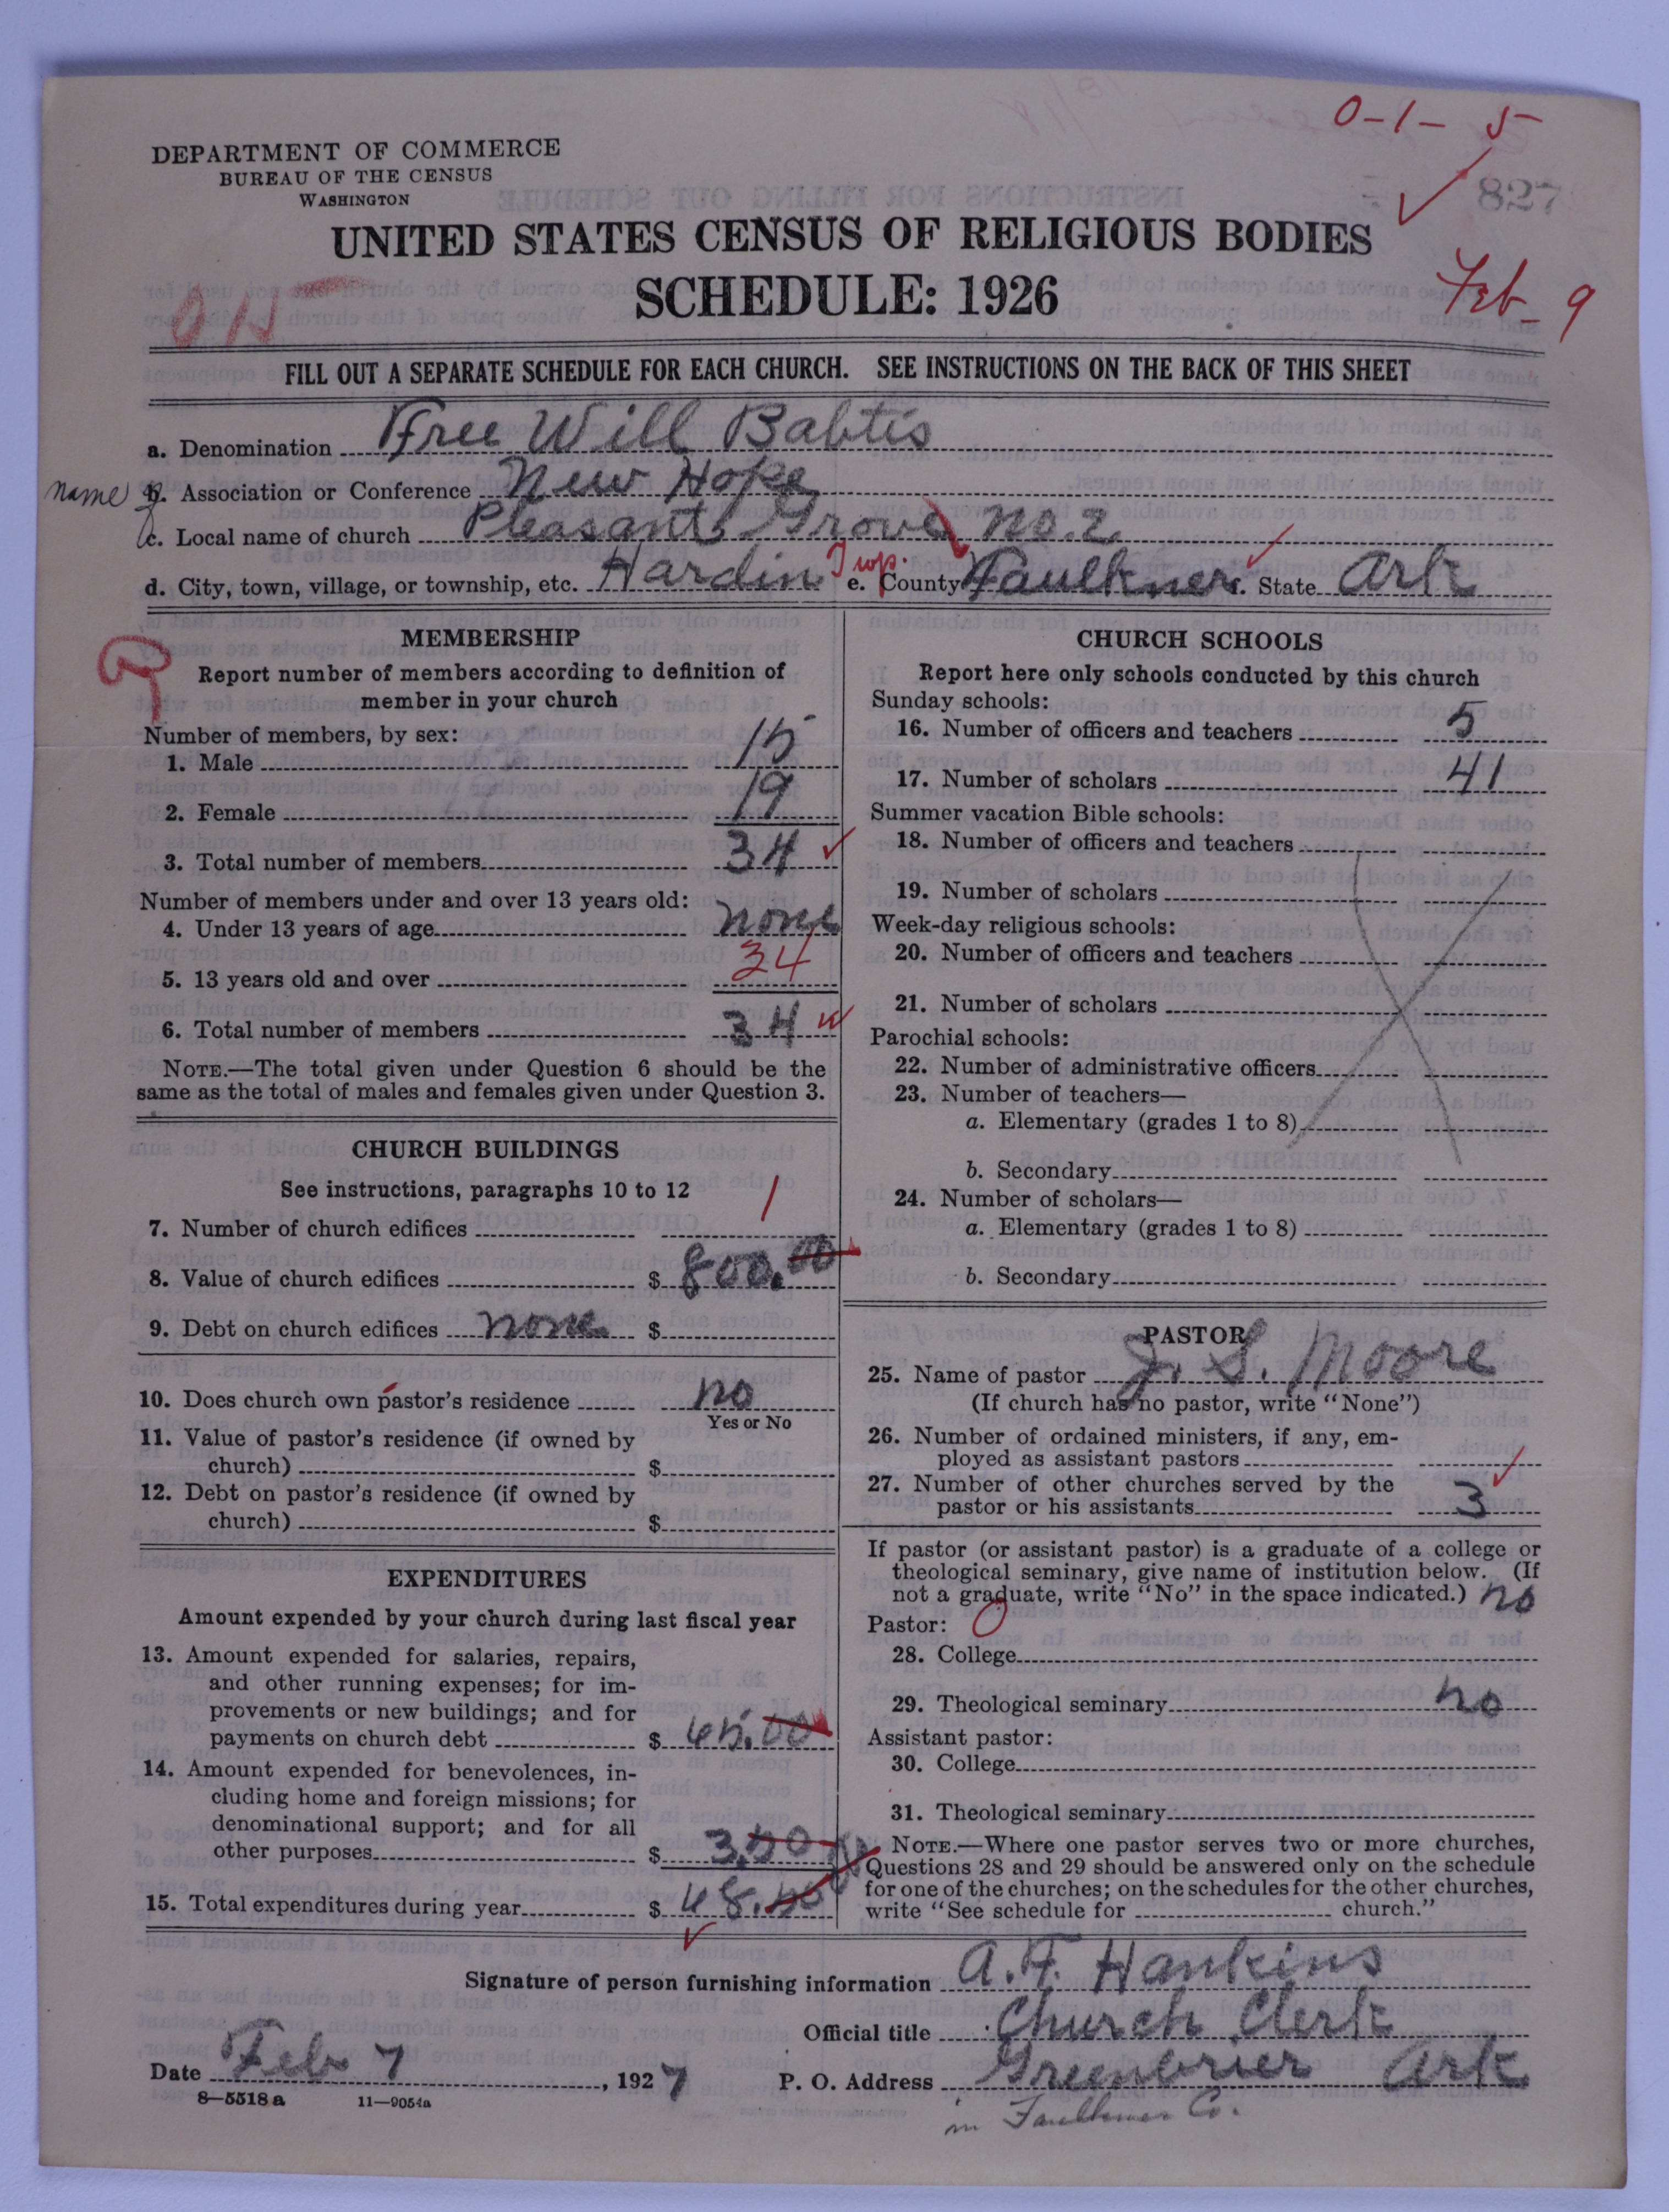 0-1-5
DEPARTMENT OF COMMERCE
BUREAU OF THE CENSUS
WASHINGTON
827
UNITED STATES CENSUS OF RELIGIOUS BODIES
SCHEDULE: 1926
Feb 9
FILL OUT A SEPARATE SCHEDULE FOR EACH CHURCH. SEE INSTRUCTIONS ON THE BACK OF THIS SHEET
a. Denomination Free Will Babtis
name b. Association or Conference New Hope
c. Local name of church Pleasant Grove No. 2
d. City, town, village, or township, etc. Hardin Twp. e. County Faulkner f. State Ark
MEMBERSHIP
Report number of members according to definition of
member in your church
Number of members, by sex:
1. Male 15
2. Female 19
3. Total number of members 34
Number of members under and over 13 years old:
4. Under 13 years of age none
5. 13 years old and over 34
6. Total number of members 34
NOTE.—The total given under Question 6 should be the
same as the total of males and females given under Question 3.
CHURCH BUILDINGS
See instructions, paragraphs 10 to 12
7. Number of church edifices 1
8. Value of church edifices $ 800.00
9. Debt on church edifices none $
10. Does church own pastor's residence no
Yes or No
11. Value of pastor's residence (if owned by
church) $
12. Debt on pastor's residence (if owned by
church) $
EXPENDITURES
Amount expended by your church during last fiscal year
13. Amount expended for salaries, repairs,
and other running expenses; for im-
provements or new buildings; and for
payments on church debt $ 45.00
14. Amount expended for benevolences, in-
cluding home and foreign missions; for
denominational support; and for all
other purposes $ 3.50
15. Total expenditures during year $ 48.50
CHURCH SCHOOLS
Report here only schools conducted by this church
Sunday schools:
16. Number of officers and teachers 5
17. Number of scholars 41
Summer vacation Bible schools:
18. Number of officers and teachers
19. Number of scholars
Week-day religious schools:
20. Number of officers and teachers
21. Number of scholars
Parochial schools:
22. Number of administrative officers
23. Number of teachers—
a. Elementary (grades 1 to 8)
b. Secondary
24. Number of scholars—
a. Elementary (grades 1 to 8)
b. Secondary
PASTOR
25. Name of pastor J. S. Moore
(If church has no pastor, write "None")
26. Number of ordained ministers, if any, em-
ployed as assistant pastors
27. Number of other churches served by the
pastor or his assistants 3
If pastor (or assistant pastor) is a graduate of a college or
theological seminary, give name of institution below. (If
not a graduate, write "No" in the space indicated.) no
Pastor:
28. College
29. Theological seminary no
Assistant pastor:
30. College
31. Theological seminary
NOTE.—Where one pastor serves two or more churches,
Questions 28 and 29 should be answered only on the schedule
for one of the churches; on the schedules for the other churches,
write "See schedule for church."
Signature of person furnishing information A. F. Hankins
Official title Church Clerk
Date Feb 7, 1927 P. O. Address Greenbrier Ark
8—5518a 11—9054a
in Faulkner Co.